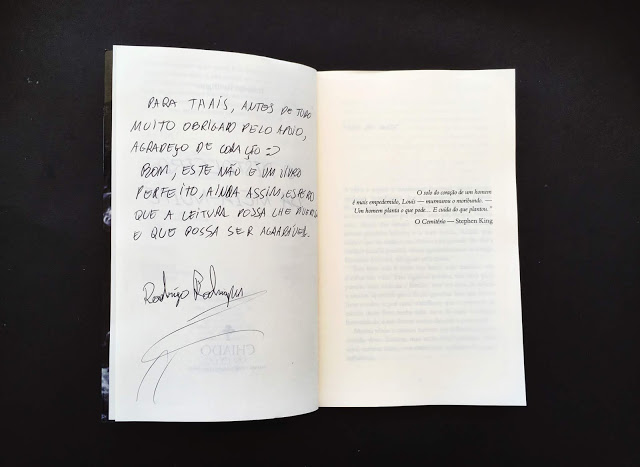 PARA THAIS, ANTES DE TUDO
MUITO OBRIGADO PELO APOIO,
AGRADEÇO DE CORAÇÃO =D
BOM, ESTE NÃO É UM LIVRO
PERFEITO, AINDA ASSIM, ESPERO
QUE A LEITURA POSSA LHE
E QUE POSSA SER AGRADÁVEL.
Rodrigo Rodrigues
CHIADO
O solo do coração de um homem
é mais empedernido, Louis — murmurou o moribundo. —
Um homem planta o que pode... E cuida do que plantou."
O Cemitério — Stephen King